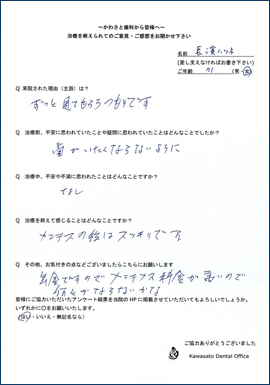 ～かわさと歯科から皆様へ～
治療を終えられてのご意見・ご感想をお聞かせ下さい
名前 長濱ハツネ
(差し支えなければお書き下さい)
ご年齢 71 (男・女)
Q 来院された理由（主訴）は？
ずっと見てもらうつもりです
Q 治療前、不安に思われていたことや疑問に思われていたことはどんなことでしたか？
歯がいたくならないように
Q 治療中、不安や不満に思われたことはどんなことですか？
なし
Q 治療を終えて感じることはどんなことですか？
メンテナスの後はスッキリです
Q その他、お気付きの点などございましたらこちらにお願いします
年金ですのでメンテナス料金が高いので
何とかならないかな
皆様にご協力いただいたアンケート結果を当院のHPに掲載させていただいてもよろしいでしょうか。
いずれかに○をお願いいたします。
(はい・いいえ・無記名なら)
ご協力ありがとうございました
Kawasato Dental Office